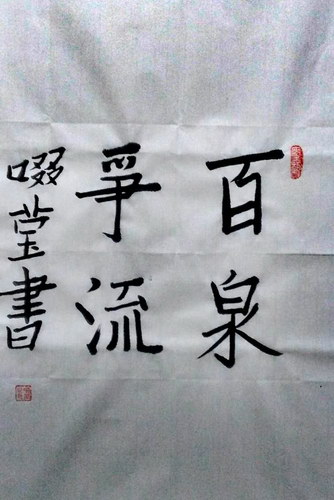 百泉
爭流
啜莹書